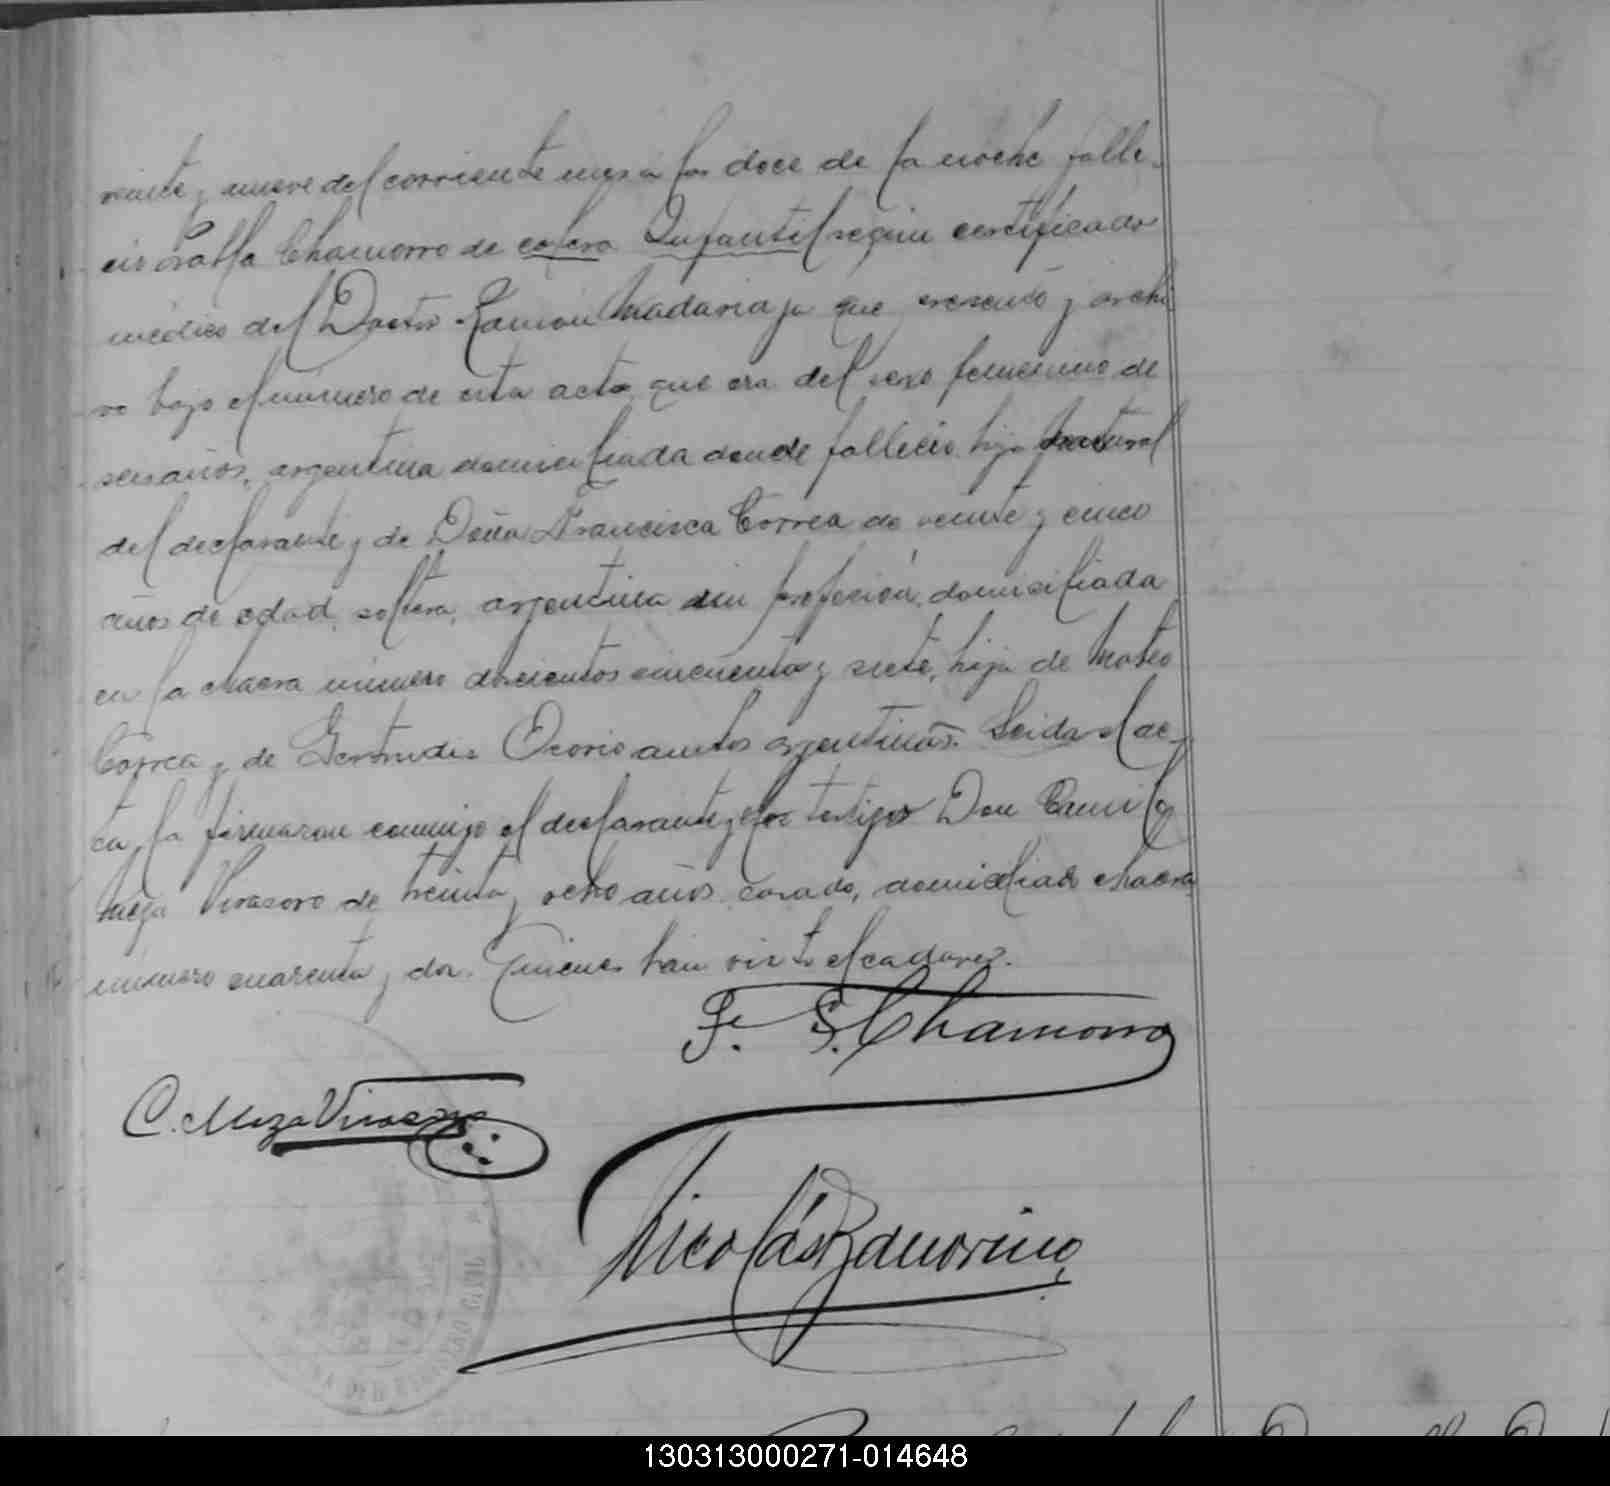 veinte y nueve del corriente mes a las doce de la noche falle-
cio Chamorro de colera Infantil según certificado
médico del Doctor Ramón Madariaga que presentó y archi
vo bajo el número de esta acta, que era del sexo femenino de
seis años, argentina domiciliada donde fallecio, hija natural
del declarante y de Doña Francisca Correa de veinte y cinco
años de edad, soltera, argentina sin profesión, domiciliada
en la chacra número doscientos cincuenta y siete, hija de Mateo
Correa y de Gertrudis Osorio ambos argentinos. Leida el ac-
ta, la firmaron conmigo el declarante y los testigos Don Camilo
Meza Virasoro de treinta y ocho años, casado, domiciliado chacra
número cuarenta y dos. Quienes han visto el cadaver.
F. S. Chamorro
C. Meza Virasoro
Nicolás Zamorino
REGISTRO CIVIL
130313000271-014648